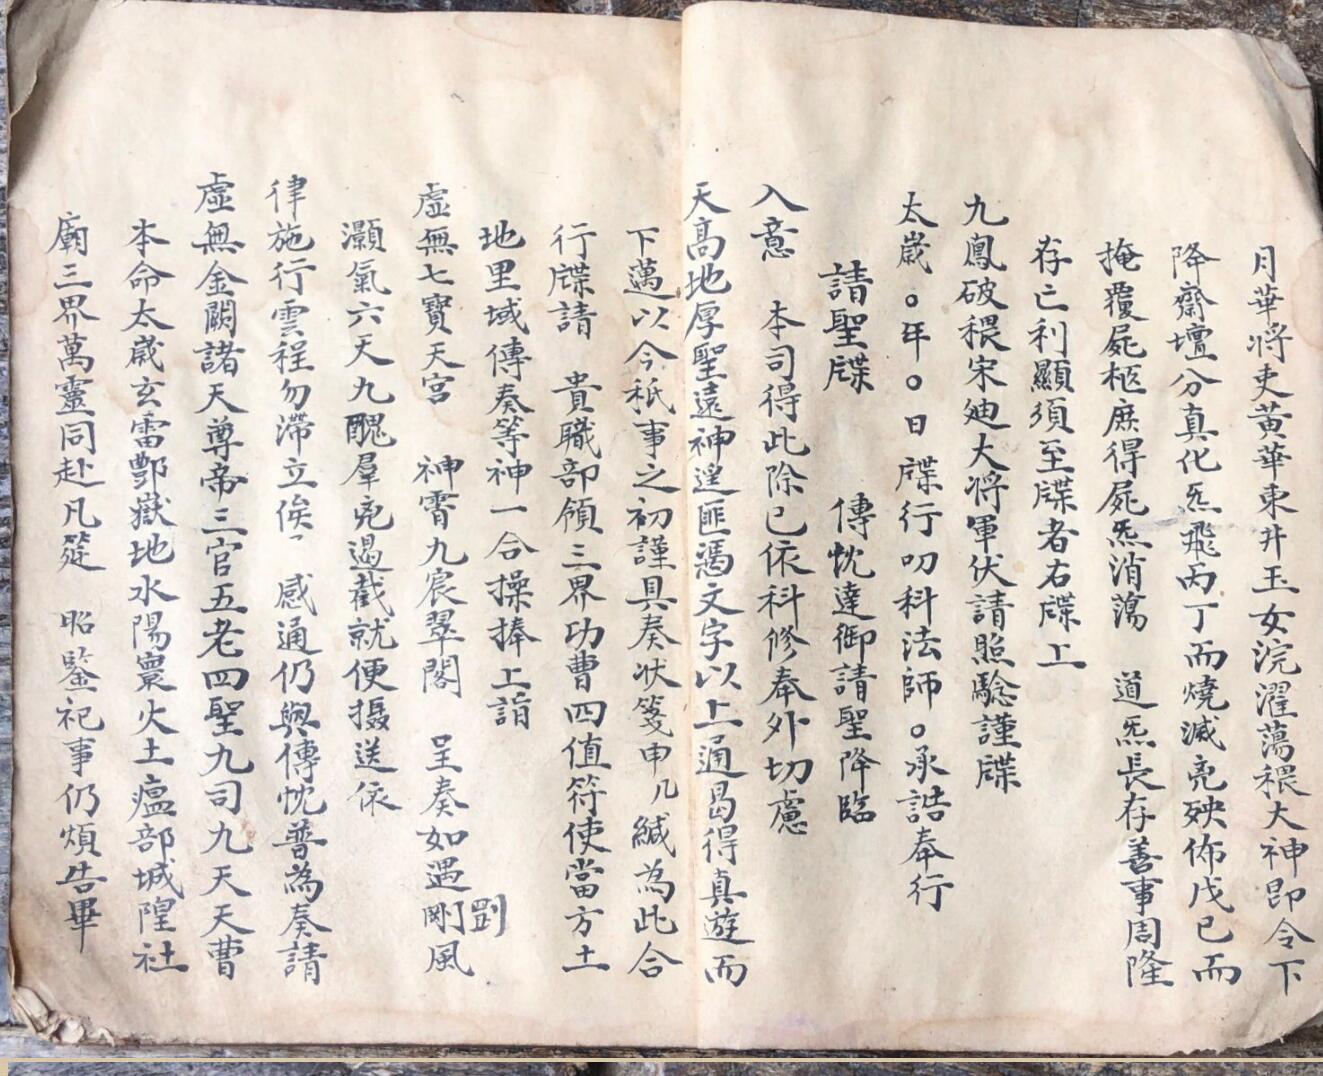 月華將吏黃華東井玉女浣濯蕩穢大神即令下
降齋壇分真化炁飛丙丁而燒滅亮殃佈戊己而
掩覆屍柩庶得屍炁消蕩　道炁長存善事周隆
存亡利顯須至牒者右牒上
九鳳破穢宋廸大將軍伏請照驗謹牒
太歲〇年〇日牒行叨科法師〇承誥奉行
請聖牒　　傳忱達御請聖降臨
入意　本司得此除已依科修奉外切慮
天高地厚聖遠神遥匪馮文字以上通曷得真遊而
下邁以今祇事之初謹具奏狀箋申几緘為此合
行牒請　貴職部領三界功曹四值符使當方土
地里域傳奏等神一合操捧上詣
虛無七寶天宮　神霄九宸翠閣　呈奏如遇剛風
劉
灝氣六天九醜羣兇遏截就便摄送依
律施行雲程勿滯立俟　感通仍與傳忱普為奏請
虛無金闕諸天尊帝三官五老四聖九司九天天曹
本命太歲玄雷酆嶽地水陽寰火土瘟部城隍社
廟三界萬靈同赴凡筵　昭鑒祀事仍煩告畢